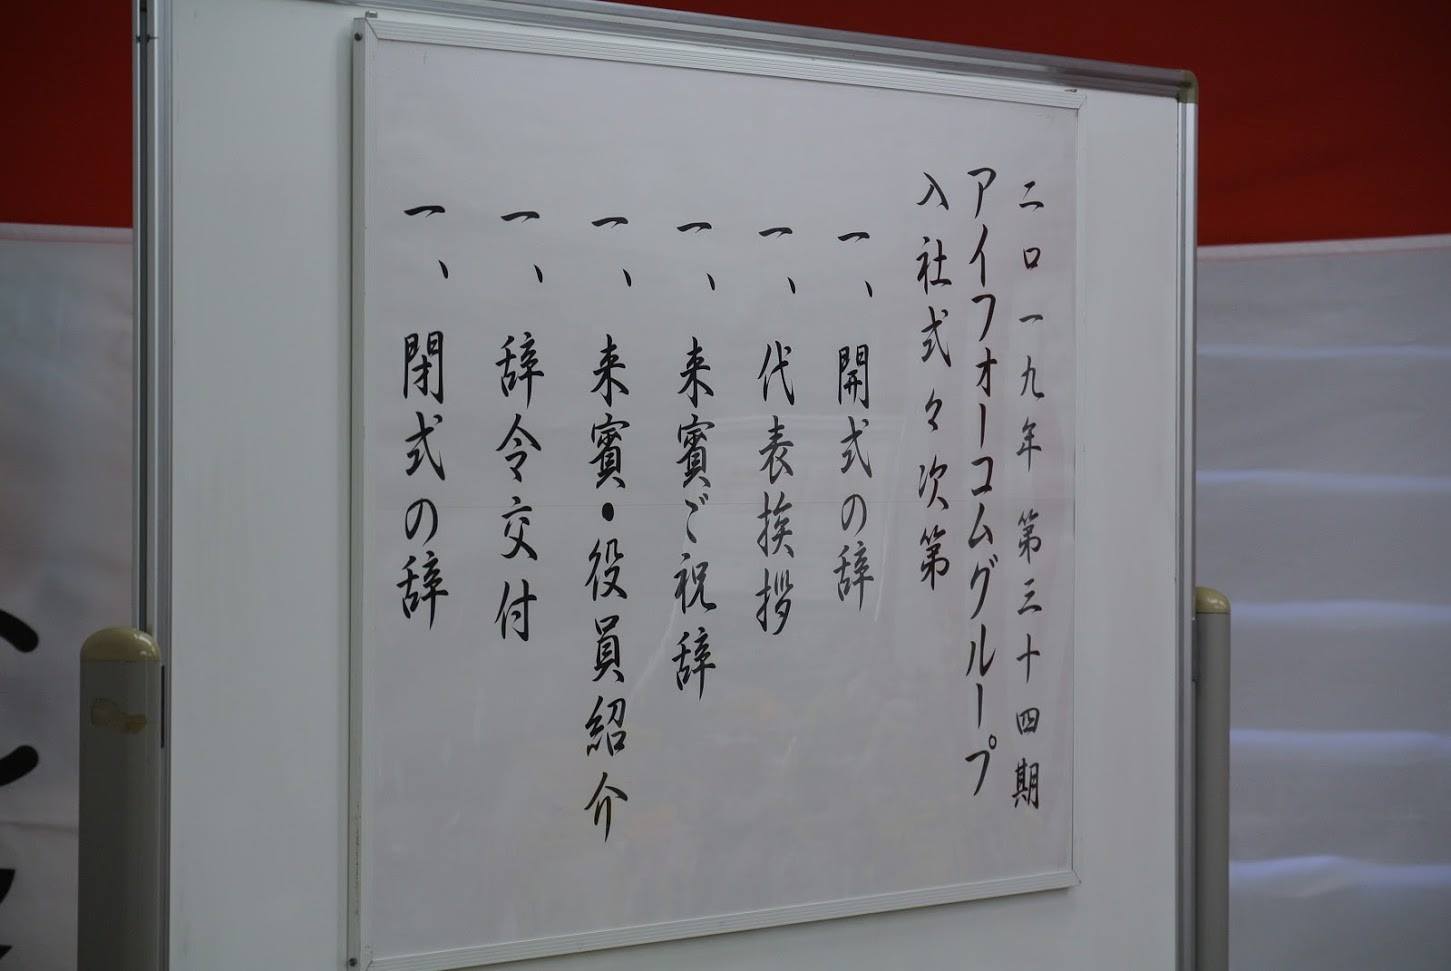 二〇一九年 第三十四期
アイフォーコムグループ
入社式々次第
一、開式の辞
一、代表挨拶
一、来賓ご祝辞
一、来賓・役員紹介
一、辞令交付
一、閉式の辞